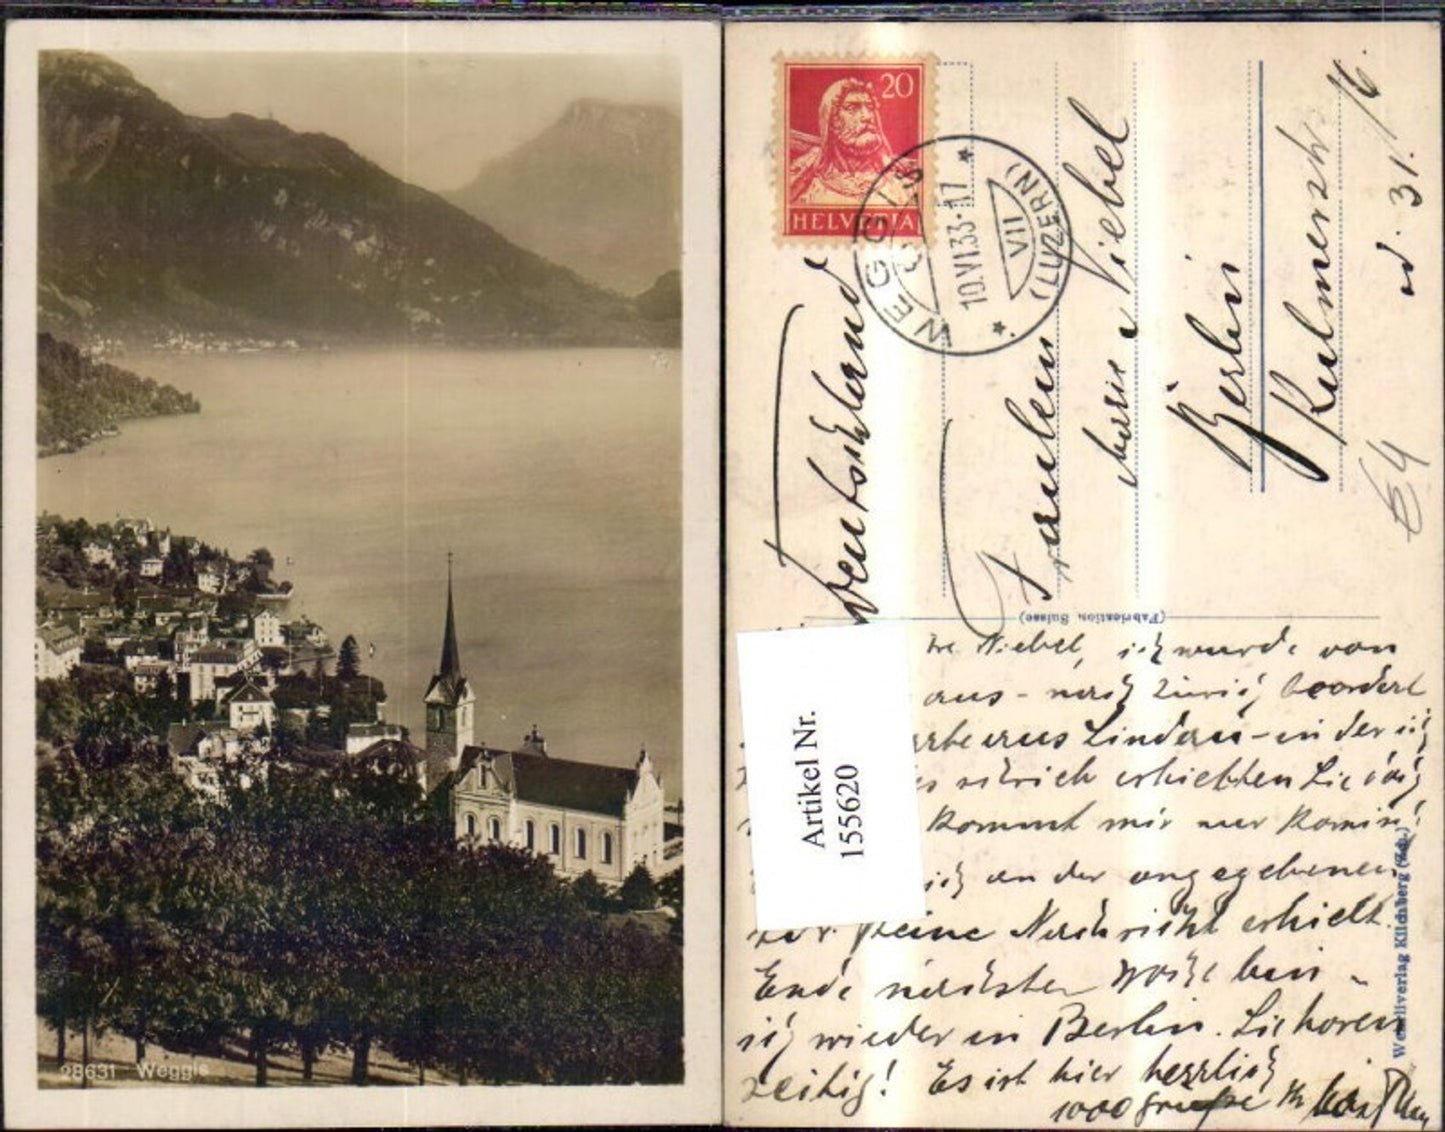 28631 Weggis
20
HELVETIA
WEGGIS
10.VI.33-17
VII
(LUZERN)
Deutschland
Fraulein
Maria Niebel
Berlin
Kulmerstr
31.
E4
(Fabrication Suisse)
Artikel Nr.
155620
Niebel, ich wurde von
aus - nach Zürich beordert
aus Lindau - in der ich
erhielten Sie
kommt mir nur
ich an der angegebenen
keine Nachricht erhielt.
Ende nächster Woche bin
ich wieder in Berlin. Sie hören
zeitig! Es ist hier herrlich
1000 Grüsse Ihr
Wehrliverlag Kilchberg (Zch.)